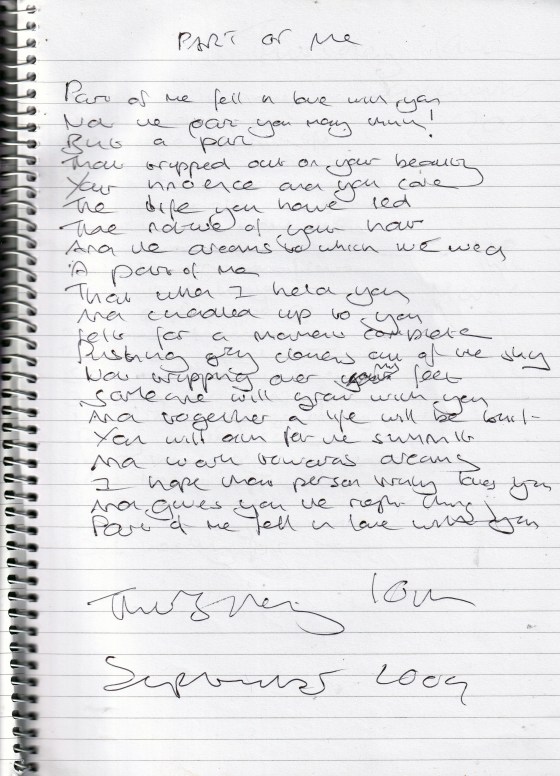 PART OF ME
Part of me fell in love with you
Not the part you may think!
But a part
That tripped out on your beauty
Your innocence and you care
The life you have led
The nature of your hair
And the dreams to which we wed
A part of me
That when I held you
And cuddled up to you
Felt for a moment complete
Pushing grey clouds out of the sky
Not tripping over my feet
Someone will grow with you
And together a life will be built
You will aim for the summit
And work towards dreams
I hope that person truly loves you
And gives you the right thing
Part of me fell in love with you
Thursday 10th
September 2009